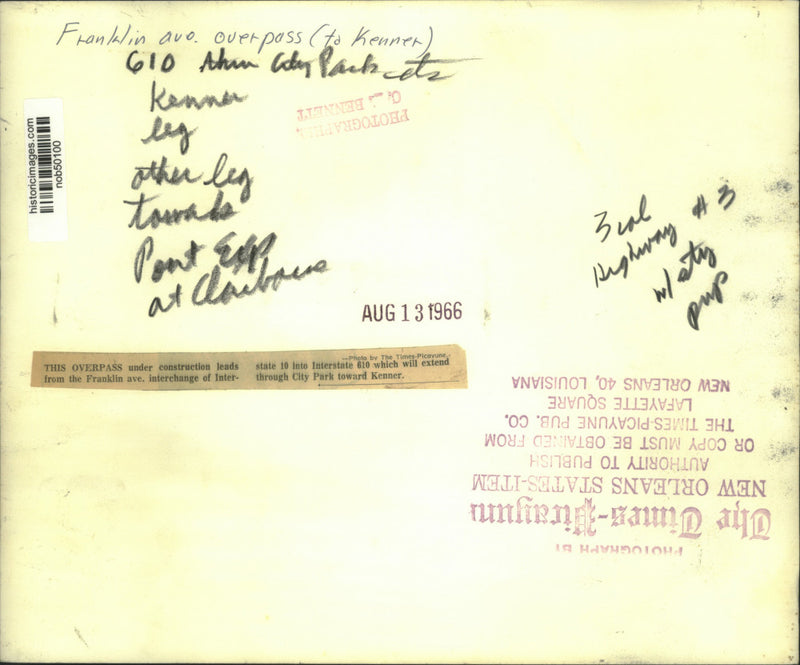 Franklin ave. overpass (to Kenner)
610 thru City Park etc
Kenner
leg
other leg
towards
Pont Exp
at Claiborne
historicimages.com
nob50100
PHOTOGRAPHER
G. J. BENNETT
3 col
Highway #3
w/ sty
pup
AUG 13 1966
—Photo by The Times-Picayune.
THIS OVERPASS under construction leads
from the Franklin ave. interchange of Inter-
state 10 into Interstate 610 which will extend
through City Park toward Kenner.
PHOTOGRAPH BY
The Times-Picayune
NEW ORLEANS STATES-ITEM
AUTHORITY TO PUBLISH
OR COPY MUST BE OBTAINED FROM
THE TIMES-PICAYUNE PUB. CO.
LAFAYETTE SQUARE
NEW ORLEANS 40, LOUISIANA